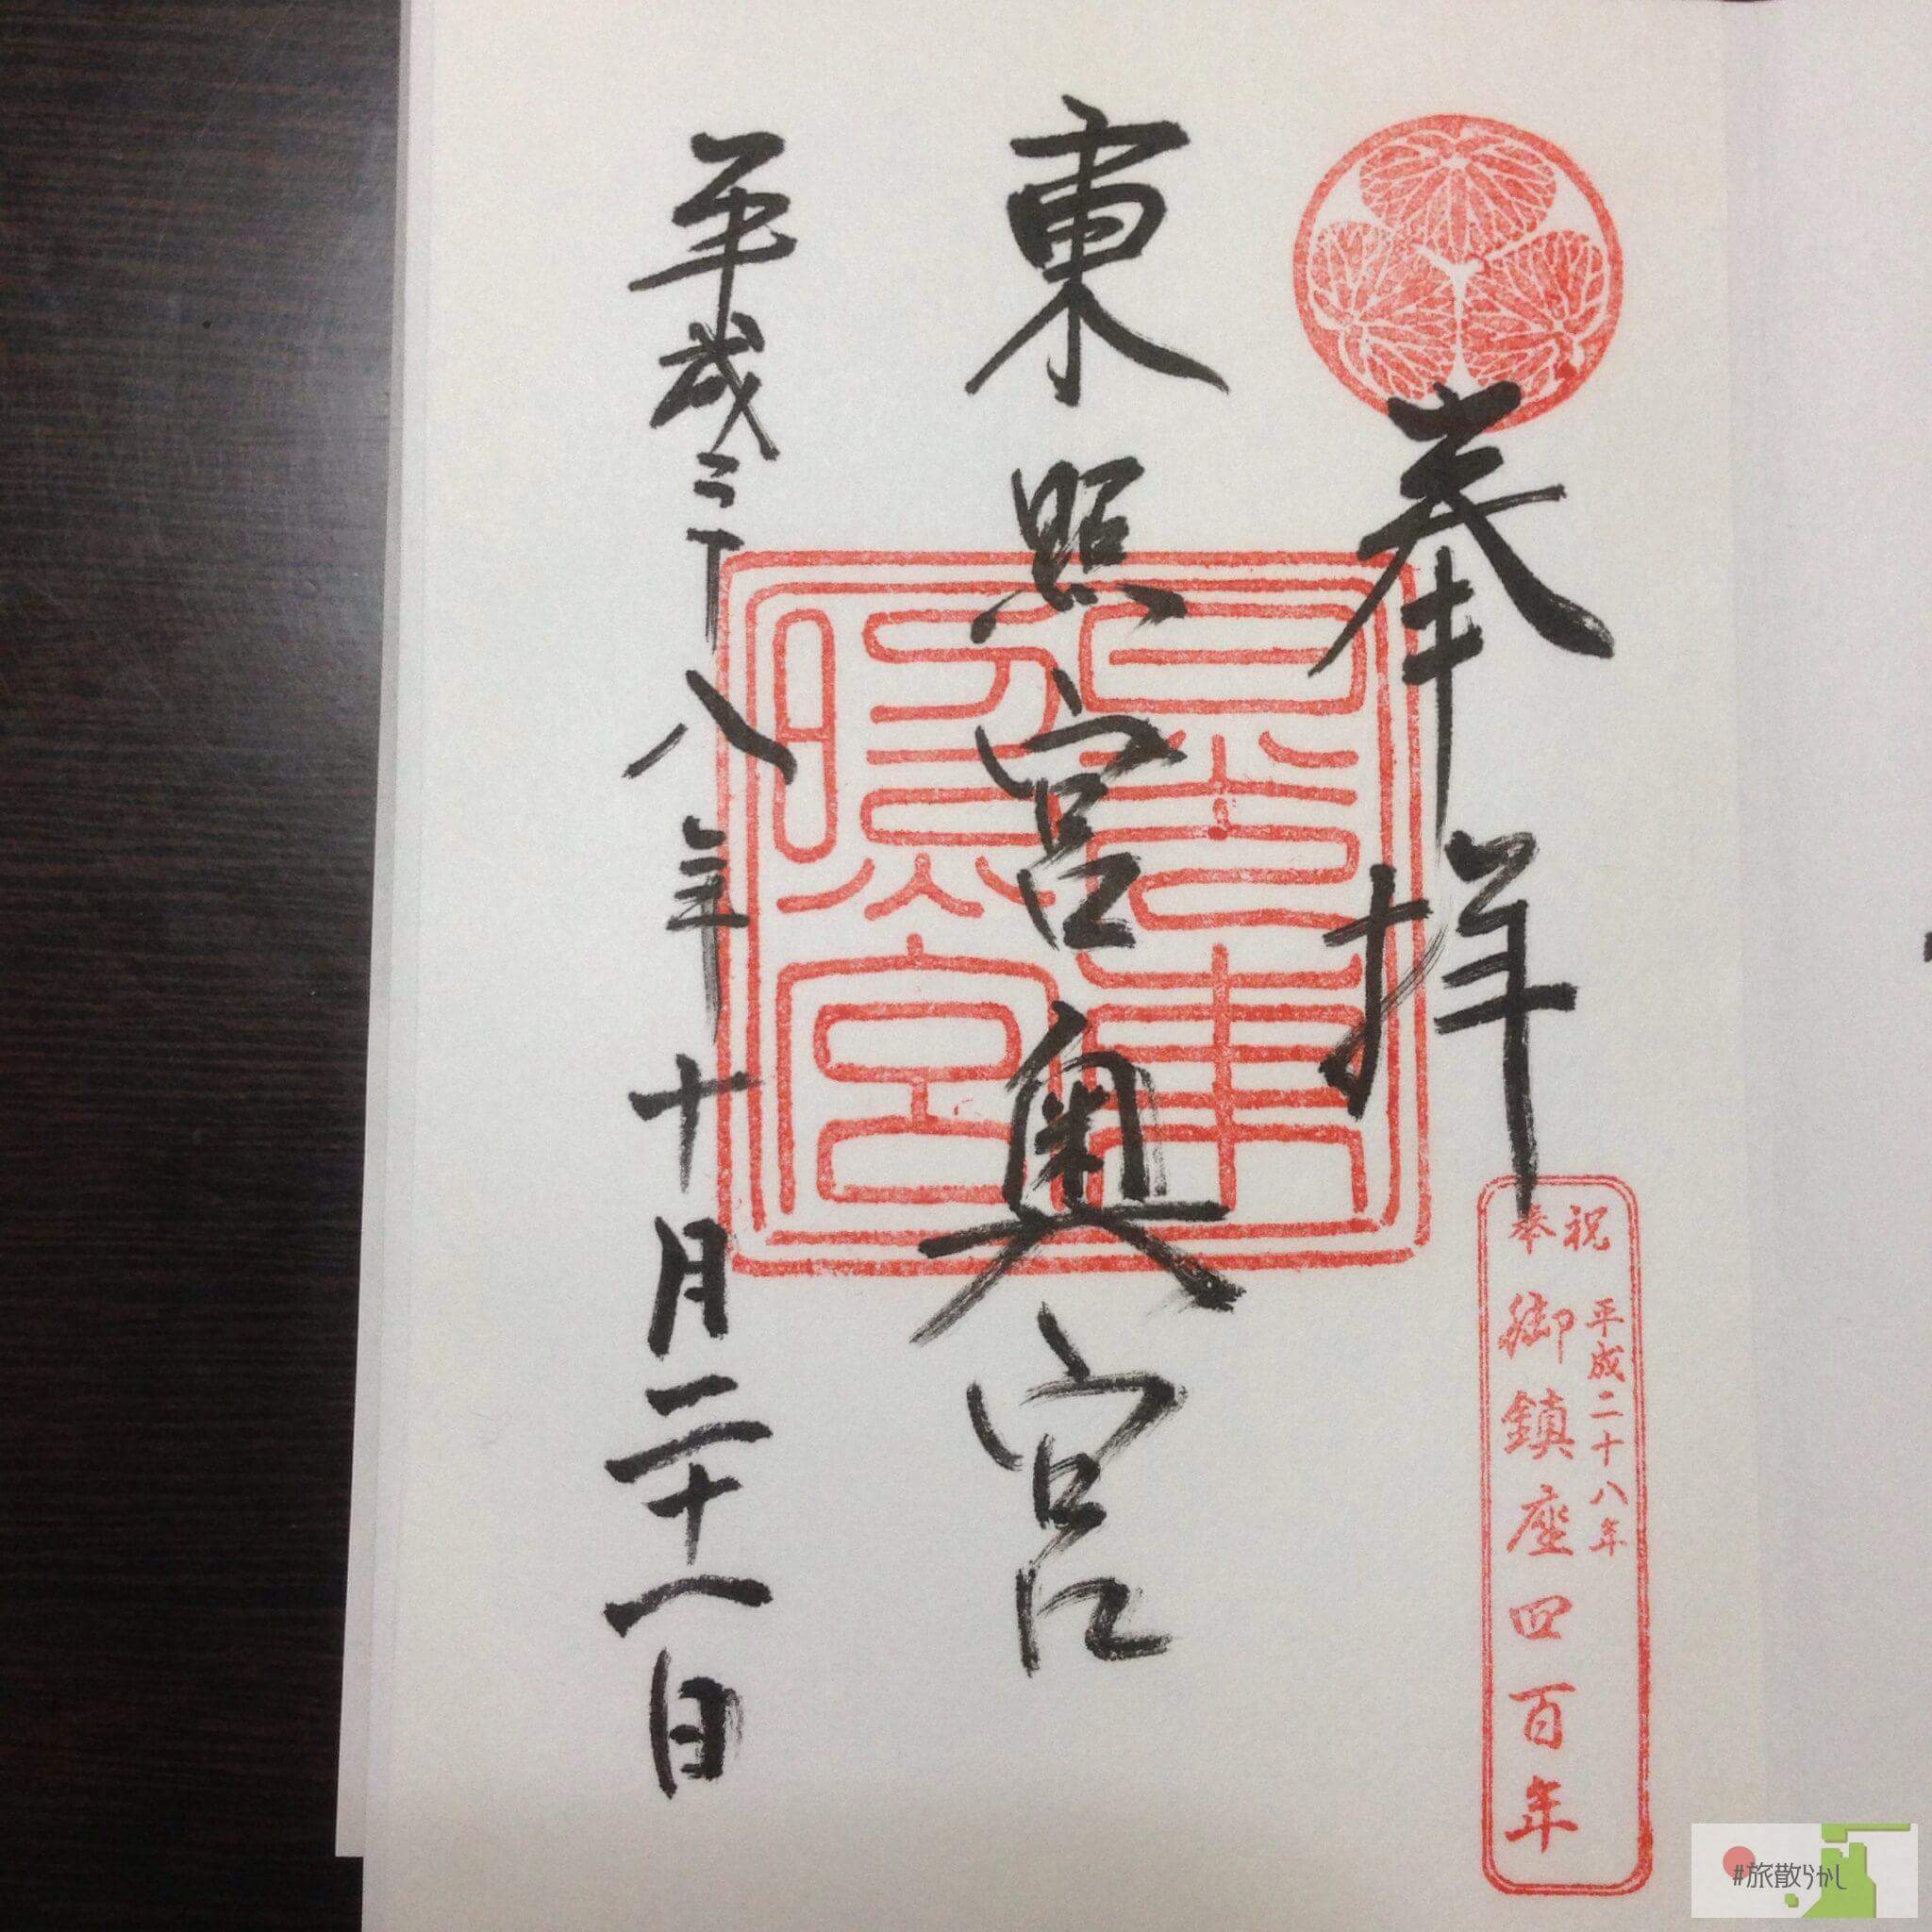 奉拝
東照宮奥宮
平成二十八年十月二十一日
日光東
照宮
奉祝
平成二十八年
御鎮座四百年
#旅散らかし